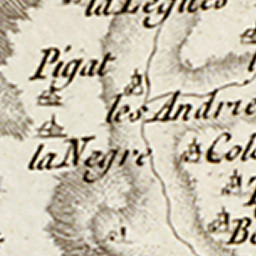 la Legues
Pigat
les Andrie
la Negre
Col
B